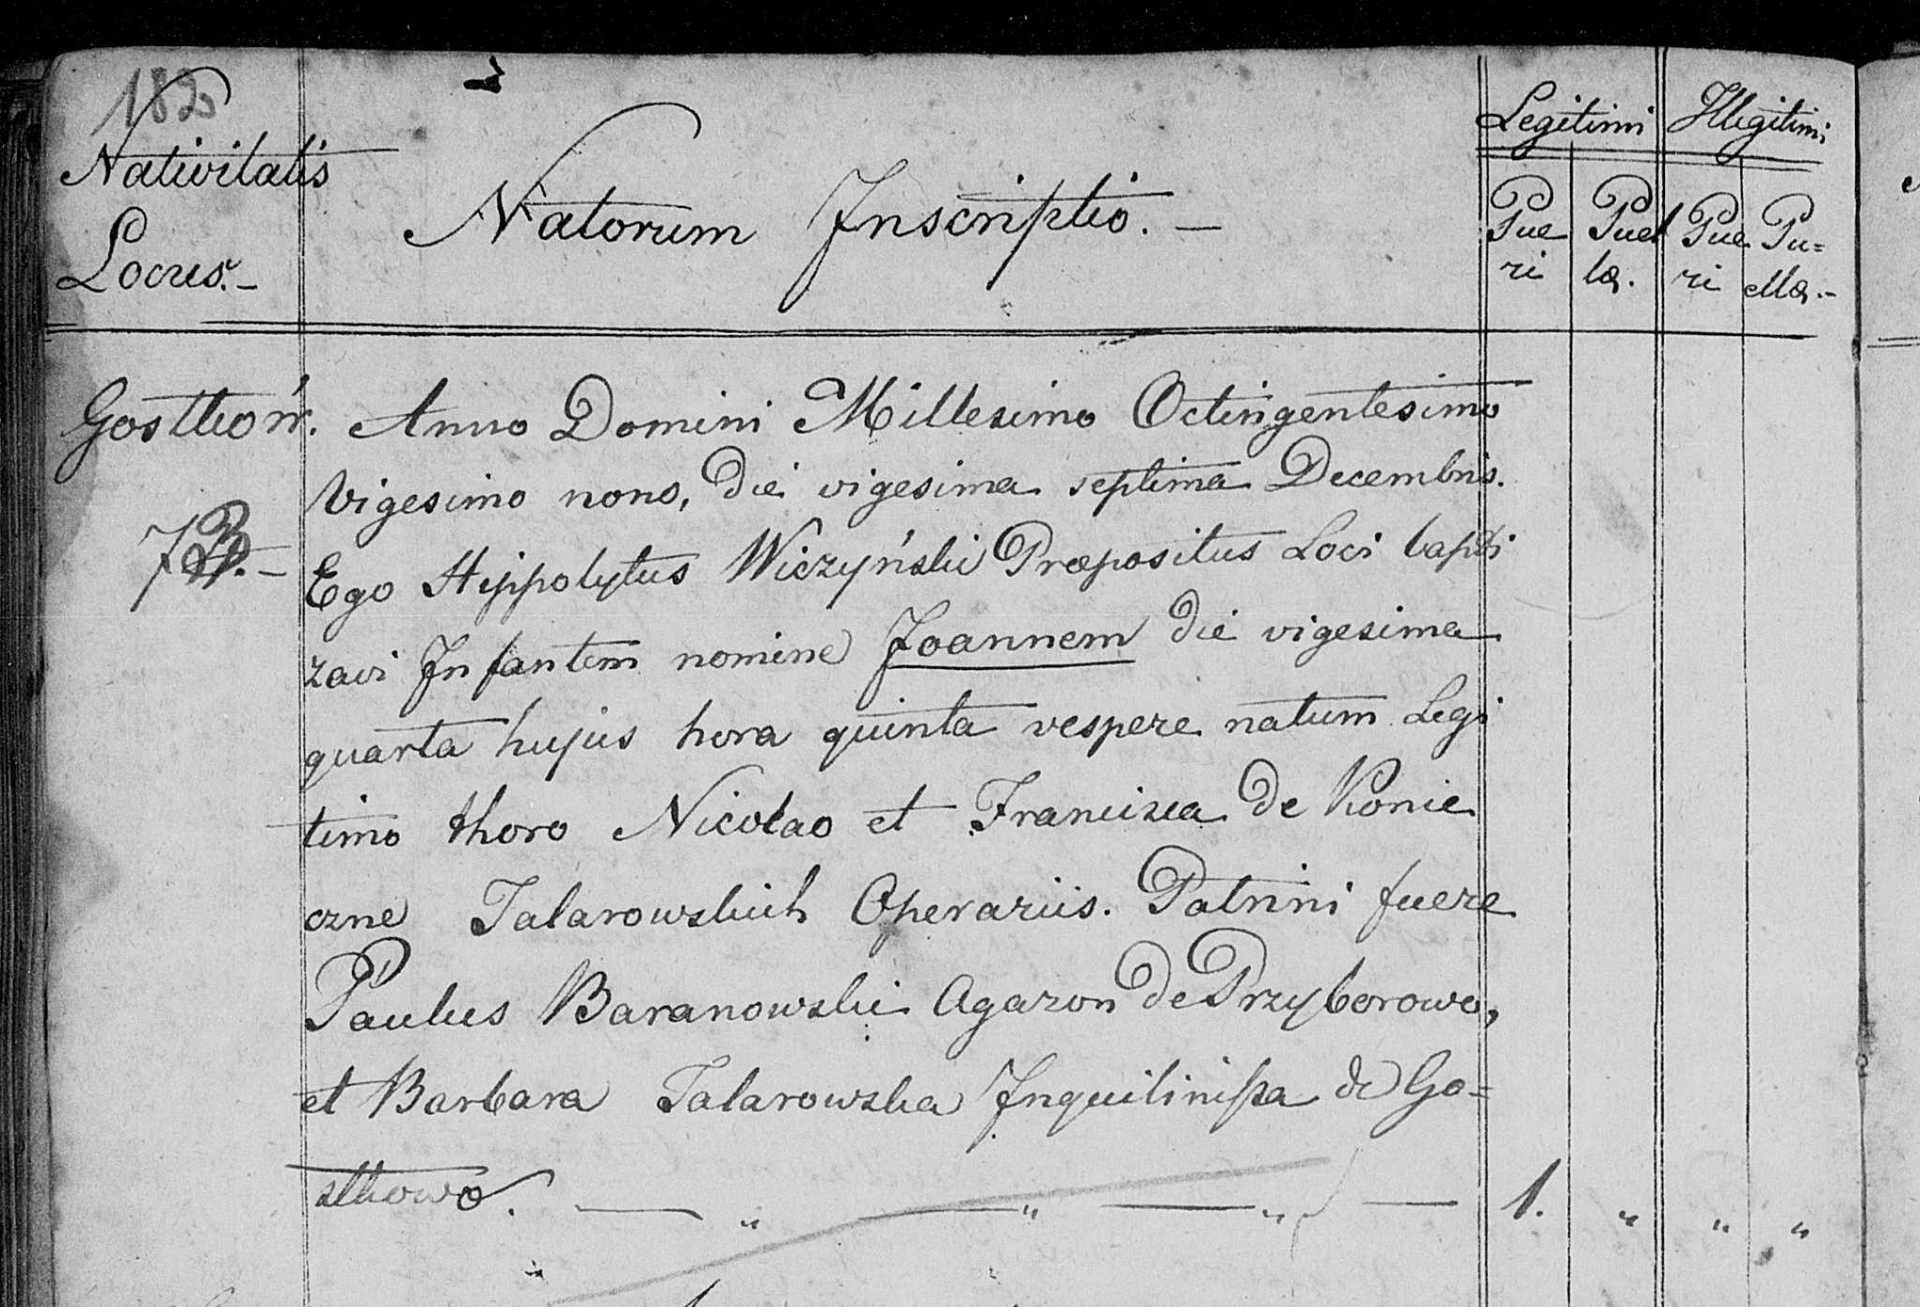 182
Nativitatis
Locus.-
Natorum Inscriptio. -
Legitimi
Illegitimi
Pue
ri
Puel
læ.
Pue
ri
Pu=
ellæ.-
Gostkow.
73.-
Anno Domini Millesimo Octingentesimo
Vigesimo nono, Die vigesima septima Decembris.
Ego Hippolytus Wiczyński Præpositus Loci bapti
zavi Infantem nomine Joannem die vigesima
quarta hujus hora quinta vespere natum Legi
timo thoro Nicolao et Francisca de Konie
czne Talarowskich Operariis. Patrini fuere
Paulus Baranowski Agazon de Przyborowo,
et Barbara Talarowska Inquilinissa de Go=
stkowo. — " — " — " — 1. " " "